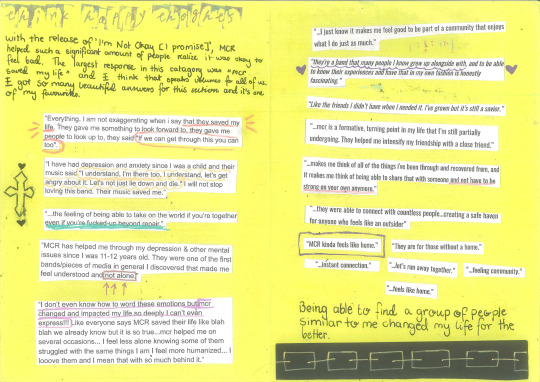 think happy thoughts
with the release of 'I'm Not Okay [I promise]', MCR
helped such a significant amount of people realize it was okay to
feel bad. The largest response in this catagory was "mcr
saved my life" and I think that speaks volumes for all of us.
I got so many beautiful answers for this section and it's one
of my favourite.
"Everything. I am not exaggerating when i say that they saved my
life. They gave me something to look forward to, they gave me
people to look up to, they said "if we can get through this you can
too".
"I have had depression and anxiety since I was a child and their
music said "I understand, I'm there too, I understand, let's get
angry about it. Let's not just lie down and die." I will not stop
loving this band. Their music saved me."
"...the feeling of being able to take on the world if you're together
even if you're fucked-up beyond repair"
"MCR has helped me through my depression & other mental
issues since I was 11-12 years old. They were one of the first
bands/pieces of media in general I discovered that made me
feel understood and not alone."
"I don't even know how to word these emotions but mcr
changed and impacted my life so deeply I can't even
express!!! Like everyone says MCR saved their life like blah
blah we already know but it is so true...mcr helped me on
several occasions... I feel less alone knowing some of them
struggled with the same things I am I feel more humanized... I
looove them and I mean that with so much behind it."
"...I just know it makes me feel good to be part of a community that enjoys
what I do just as much."
"they're a band that many people I know grew up alongside with, and to be able
to know their experiences and have that in my own fashion is honestly
fascinating."
"Like the friends I didn't have when I needed it. I've grown but it's still a savior."
"...mcr is a formative, turning point in my life that I'm still partially
undergoing. They helped me intensify my friendship with a close friend."
"...makes me think of all of the things I've been through and recovered from, and
it makes me think of being able to share that with someone and not have to be
strong on your own anymore."
"...they were able to connect with countless people...creating a safe haven
for anyone who feels like an outsider"
"MCR kinda feels like home." "They are for those without a home."
"...instant connection. "...let's run away together." "...feeling community."
"...feels like home."
Being able to find a group of people
similar to me changed my life for the
better.